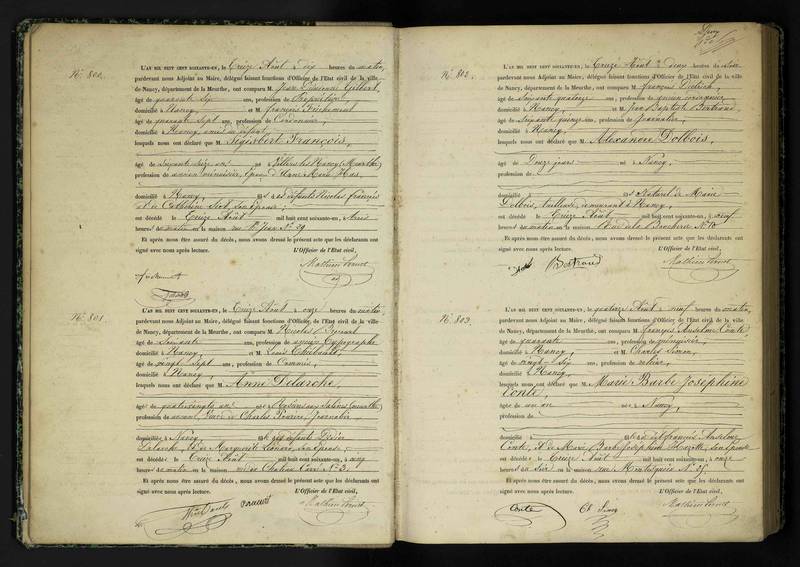 N° 800.
L'AN MIL HUIT CENT SOIXANTE-UN, le Treize Août à dix heures du matin,
pardevant nous Adjoint au Maire, délégué faisant fonctions d'Officier de l'Etat civil de la ville
de Nancy, département de la Meurthe, ont comparu M. Jean Gilbert,
âgé de quarante Six ans, profession de Propriétaire,
domicilié à Nancy et M. François
âgé de quarante Sept ans, profession de Cordonnier,
domicilié à Nancy,
lesquels nous ont déclaré que M. Sigisbert François,
âgé de Soixante Seize ans né à Villers les Nancy (Meurthe)
profession de ancien menuisier, époux d'Anne Marie
domicilié à Nancy, fils des défunts Nicolas François
et de Catherine son épouse;
est décédé le Treize Août mil huit cent soixante-un, à trois
heures du matin en la maison rue St Jean N° 39
Et après nous être assuré du décès, nous avons dressé le présent acte que les déclarants ont
signé avec nous après lecture. L'Officier de l'Etat civil,
N° 801.
L'AN MIL HUIT CENT SOIXANTE-UN, le Treize Août à onze heures du matin,
pardevant nous Adjoint au Maire, délégué faisant fonctions d'Officier de l'Etat civil de la ville
de Nancy, département de la Meurthe, ont comparu M. Nicolas
âgé de Soixante ans, profession de ancien Typographe
domicilié à Nancy, et M. Louis Thibault,
âgé de vingt Sept ans, profession de Commis,
domicilié à Nancy,
lesquels nous ont déclaré que M. Anne Delarche,
âgée de quatrevingts ans née à
profession de veuve de Charles, Journalier
domiciliée à Nancy fille des défunts Didier
Delarche, et de Marguerite Léonard, son épouse;
est décédée le Treize Août mil huit cent soixante-un, à cinq
heures du matin en la maison N° 3.
Et après nous être assuré du décès, nous avons dressé le présent acte que les déclarants ont
signé avec nous après lecture. L'Officier de l'Etat civil,
N° 802.
L'AN MIL HUIT CENT SOIXANTE-UN, le Treize Août à deux heures du soir
pardevant nous Adjoint au Maire, délégué faisant fonctions d'Officier de l'Etat civil de la ville
de Nancy, département de la Meurthe, ont comparu M. François Dietrich,
âgé de Soixante quatorze ans, profession de ancien
domicilié à Nancy, et M. Jean Baptiste Bertrand,
âgé de Soixante quinze ans, profession de Journalier,
domicilié à Nancy,
lesquels nous ont déclaré que M. Alexandre Dolbois,
âgé de Onze jours né à Nancy,
profession de
domicilié à fils Naturel de Marie
Dolbois, demeurant à Nancy,
est décédé le Treize Août mil huit cent soixante-un, à neuf
heures du matin en la maison Rue de la Boucherie N° 10
Et après nous être assuré du décès, nous avons dressé le présent acte que les déclarants ont
signé avec nous après lecture. L'Officier de l'Etat civil,
Bertrand
N° 803.
L'AN MIL HUIT CENT SOIXANTE-UN, le quatorze Août à neuf heures du matin,
pardevant nous Adjoint au Maire, délégué faisant fonctions d'Officier de l'Etat civil de la ville
de Nancy, département de la Meurthe, ont comparu M. François Anselme Conte,
âgé de quarante ans, profession de
domicilié à Nancy, et M. Charles Simon,
âgé de vingt-Six ans, profession de
domicilié à Nancy,
lesquels nous ont déclaré que M. Marie Barbe Joséphine
Conte,
âgée de un an née à Nancy,
profession de
domiciliée à fille de François Anselme
Conte, et de Marie Barbe Joséphine son épouse
est décédée le Treize Août mil huit cent soixante-un, à onze
heures du soir en la maison rue Montesquieu N° 25.
Et après nous être assuré du décès, nous avons dressé le présent acte que les déclarants ont
signé avec nous après lecture. L'Officier de l'Etat civil,
Conte Ch Simon